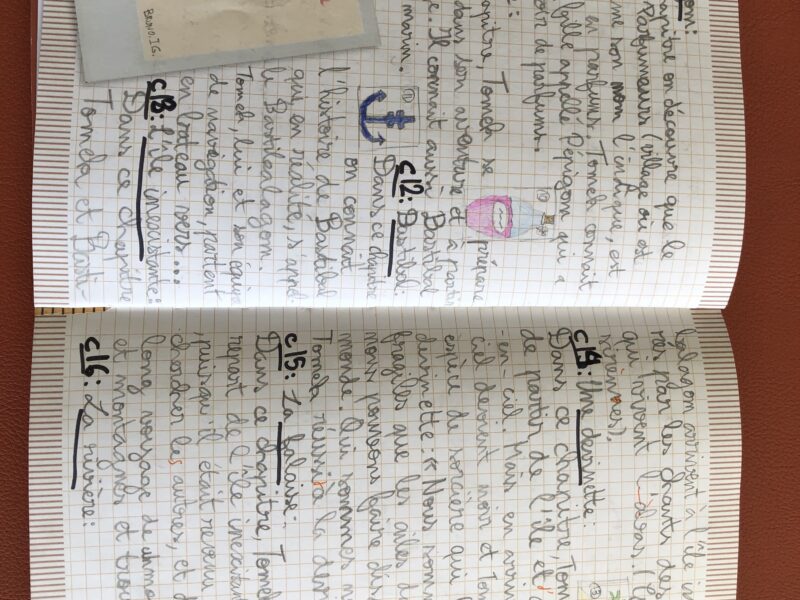 om:
apitre on découvre que le
Parfumeurs (village où est
me son nom l'indique, est
en parfums. Tomek connait
fille appellé Pépigom qui a
oir de parfums.
:
apitre, Tomek se prépare
dans son aventure et à
e. Il connait aussi Bastibal
marin.
c12: Bastibali
Dans ce chapitre
on connait
l'histoire de Bastibal
que en réalité, s'appel
li Bastibalagom.
Tomek, lui et son équi
de navegation, partent
en bateau vers...
c13: L'île inexistante:
Dans ce chapitre
Tomek et Basti
BRNO.IG.
balagom arrivent à l'île in
rés par les chants des
qui vivent
c14: Une devinette:
Dans ce chapitre, Tom
de partir de l'île et
-en-ciel. Mais en arriv
ciel devient noir et Tom
espèce de sorcière qui
devinette: « Nous somm
fragiles que les ailes d
nous pouvons faire dis
monde. Qui sommes n
Tomek réussit à la dev
c15: La falaise:
Dans ce chapitre, Tome
repart de l'île inexistan
, puisqu'il était revenu
chercher les autres, et
long voyage de
et montagnes et trou
c16: La rivière: